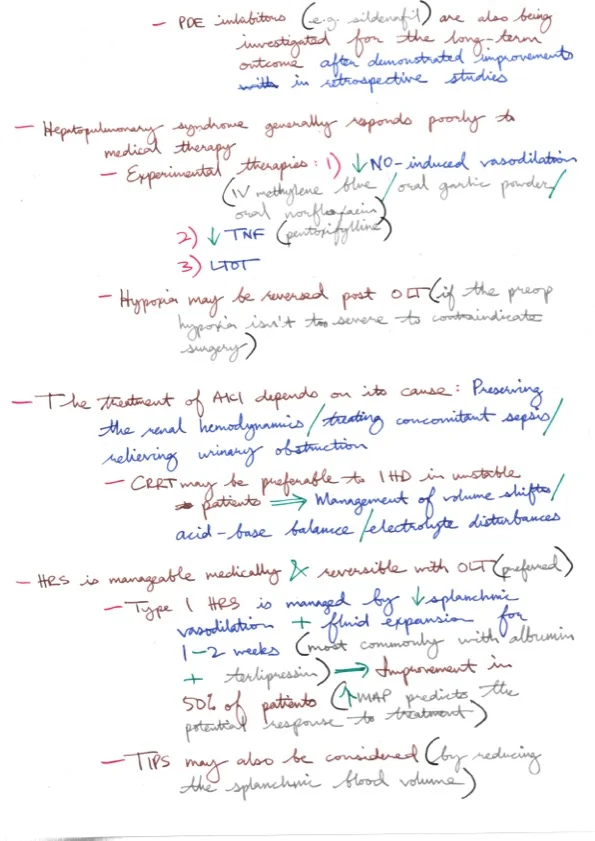 — PDE inhibitors (e.g. sildenafil) are also being
investigated for the long-term
outcome after demonstrated improvements
with in retrospective studies
— Hepatopulmonary syndrome generally responds poorly to
medical therapy
— Experimental therapies: 1) ↓NO-induced vasodilation
(IV methylene blue / oral garlic powder /
oral norfloxacin)
2) ↓ TNF (pentoxifylline)
3) LTOT
— Hypoxia may be reversed post OLT (if the preop
hypoxia isn't too severe to contraindicate
surgery)
— The treatment of AKI depends on its cause: Preserving
the renal hemodynamics / treating concomitant sepsis /
relieving urinary obstruction
— CRRT may be preferable to IHD in unstable
patients ⟹ Management of volume shifts /
acid-base balance / electrolyte disturbances
— HRS is manageable medically & reversible with OLT (preferred)
— Type 1 HRS is managed by ↓splanchnic
vasodilation + fluid expansion for
1-2 weeks (most commonly with albumin
+ terlipressin) ⟶ Improvement in
50% of patients (↑MAP predicts the
potential response to treatment)
— TIPS may also be considered (by reducing
the splanchnic blood volume)